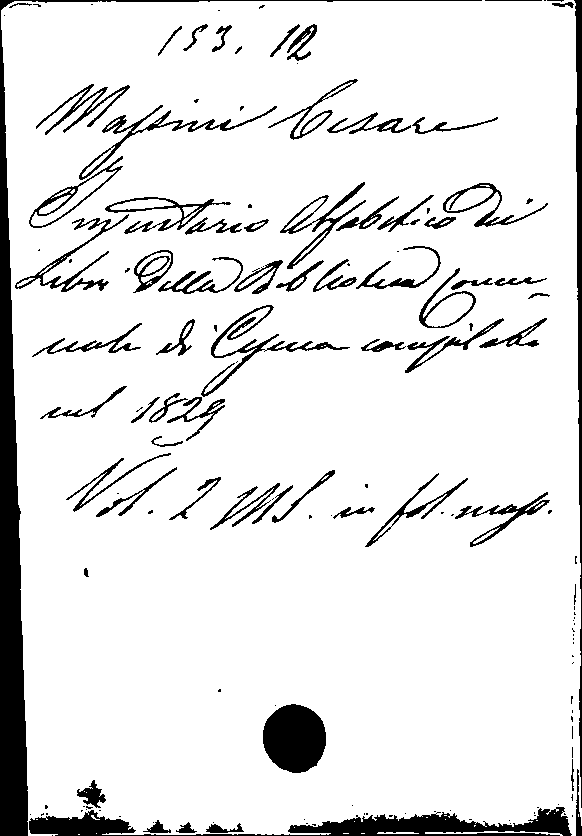 153. 12
Massini Cesare
Inventario Alfabetico dei
Libri della Biblioteca Comu-
nale di compilato
nel 1829
Vol. 2 MS. in fol. mass.